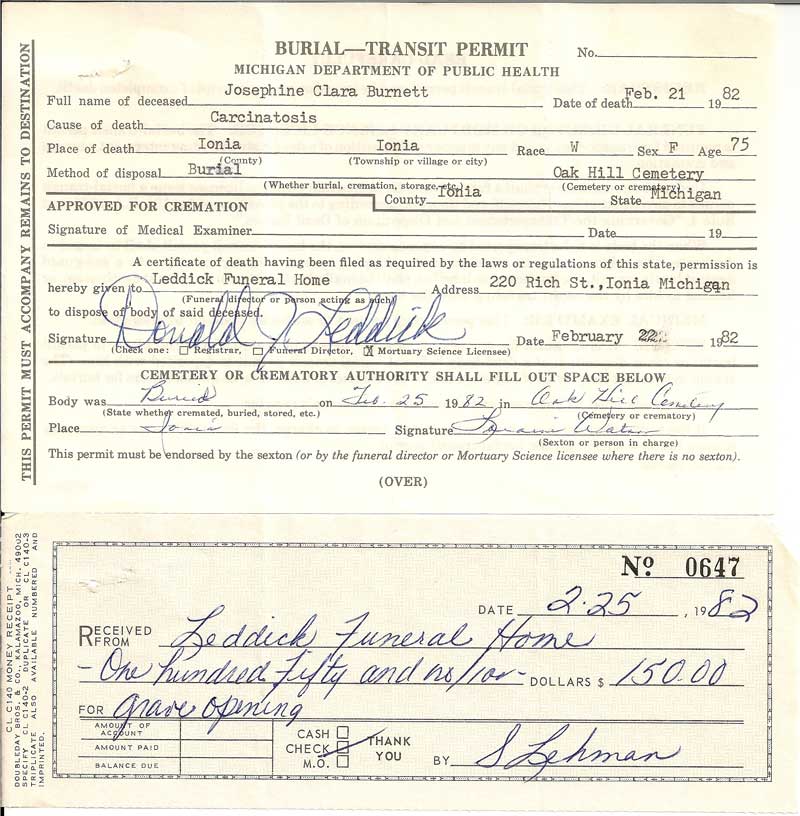 BURIAL—TRANSIT PERMIT No.
MICHIGAN DEPARTMENT OF PUBLIC HEALTH
Full name of deceased Josephine Clara Burnett Date of death Feb. 21 1982
Cause of death Carcinatosis
Place of death Ionia Ionia Race W Sex F Age 75
(County) (Township or village or city)
Method of disposal Burial Oak Hill Cemetery
(Whether burial, cremation, storage, etc.) (Cemetery or crematory)
County Ionia State Michigan
APPROVED FOR CREMATION
Signature of Medical Examiner Date 19
A certificate of death having been filed as required by the laws or regulations of this state, permission is
hereby given to Leddick Funeral Home Address 220 Rich St.,Ionia Michigan
(Funeral director or person acting as such)
to dispose of body of said deceased.
Signature Donald J Leddick Date February 22 1982
(Check one: Registrar, Funeral Director, X Mortuary Science Licensee)
CEMETERY OR CREMATORY AUTHORITY SHALL FILL OUT SPACE BELOW
Body was Buried on Feb. 25 1982 in Oak Hill Cemetery
(State whether cremated, buried, stored, etc.) (Cemetery or crematory)
Place Ionia Signature Watson
(Sexton or person in charge)
This permit must be endorsed by the sexton (or by the funeral director or Mortuary Science licensee where there is no sexton).
(OVER)
THIS PERMIT MUST ACCOMPANY REMAINS TO DESTINATION
CL C140 MONEY RECEIPT
DOUBLEDAY BROS. & CO., KALAMAZOO, MICH. 49002
SPECIFY CL C140-2 DUPLICATE OR CL C140-3
TRIPLICATE ALSO AVAILABLE NUMBERED AND
IMPRINTED.
No 0647
DATE 2-25, 1982
RECEIVED FROM Leddick Funeral Home
- One hundred Fifty and no/100 - DOLLARS $ 150.00
FOR grave opening
AMOUNT OF ACCOUNT
AMOUNT PAID
BALANCE DUE
CASH
CHECK
M.O.
THANK YOU
BY S Lehman